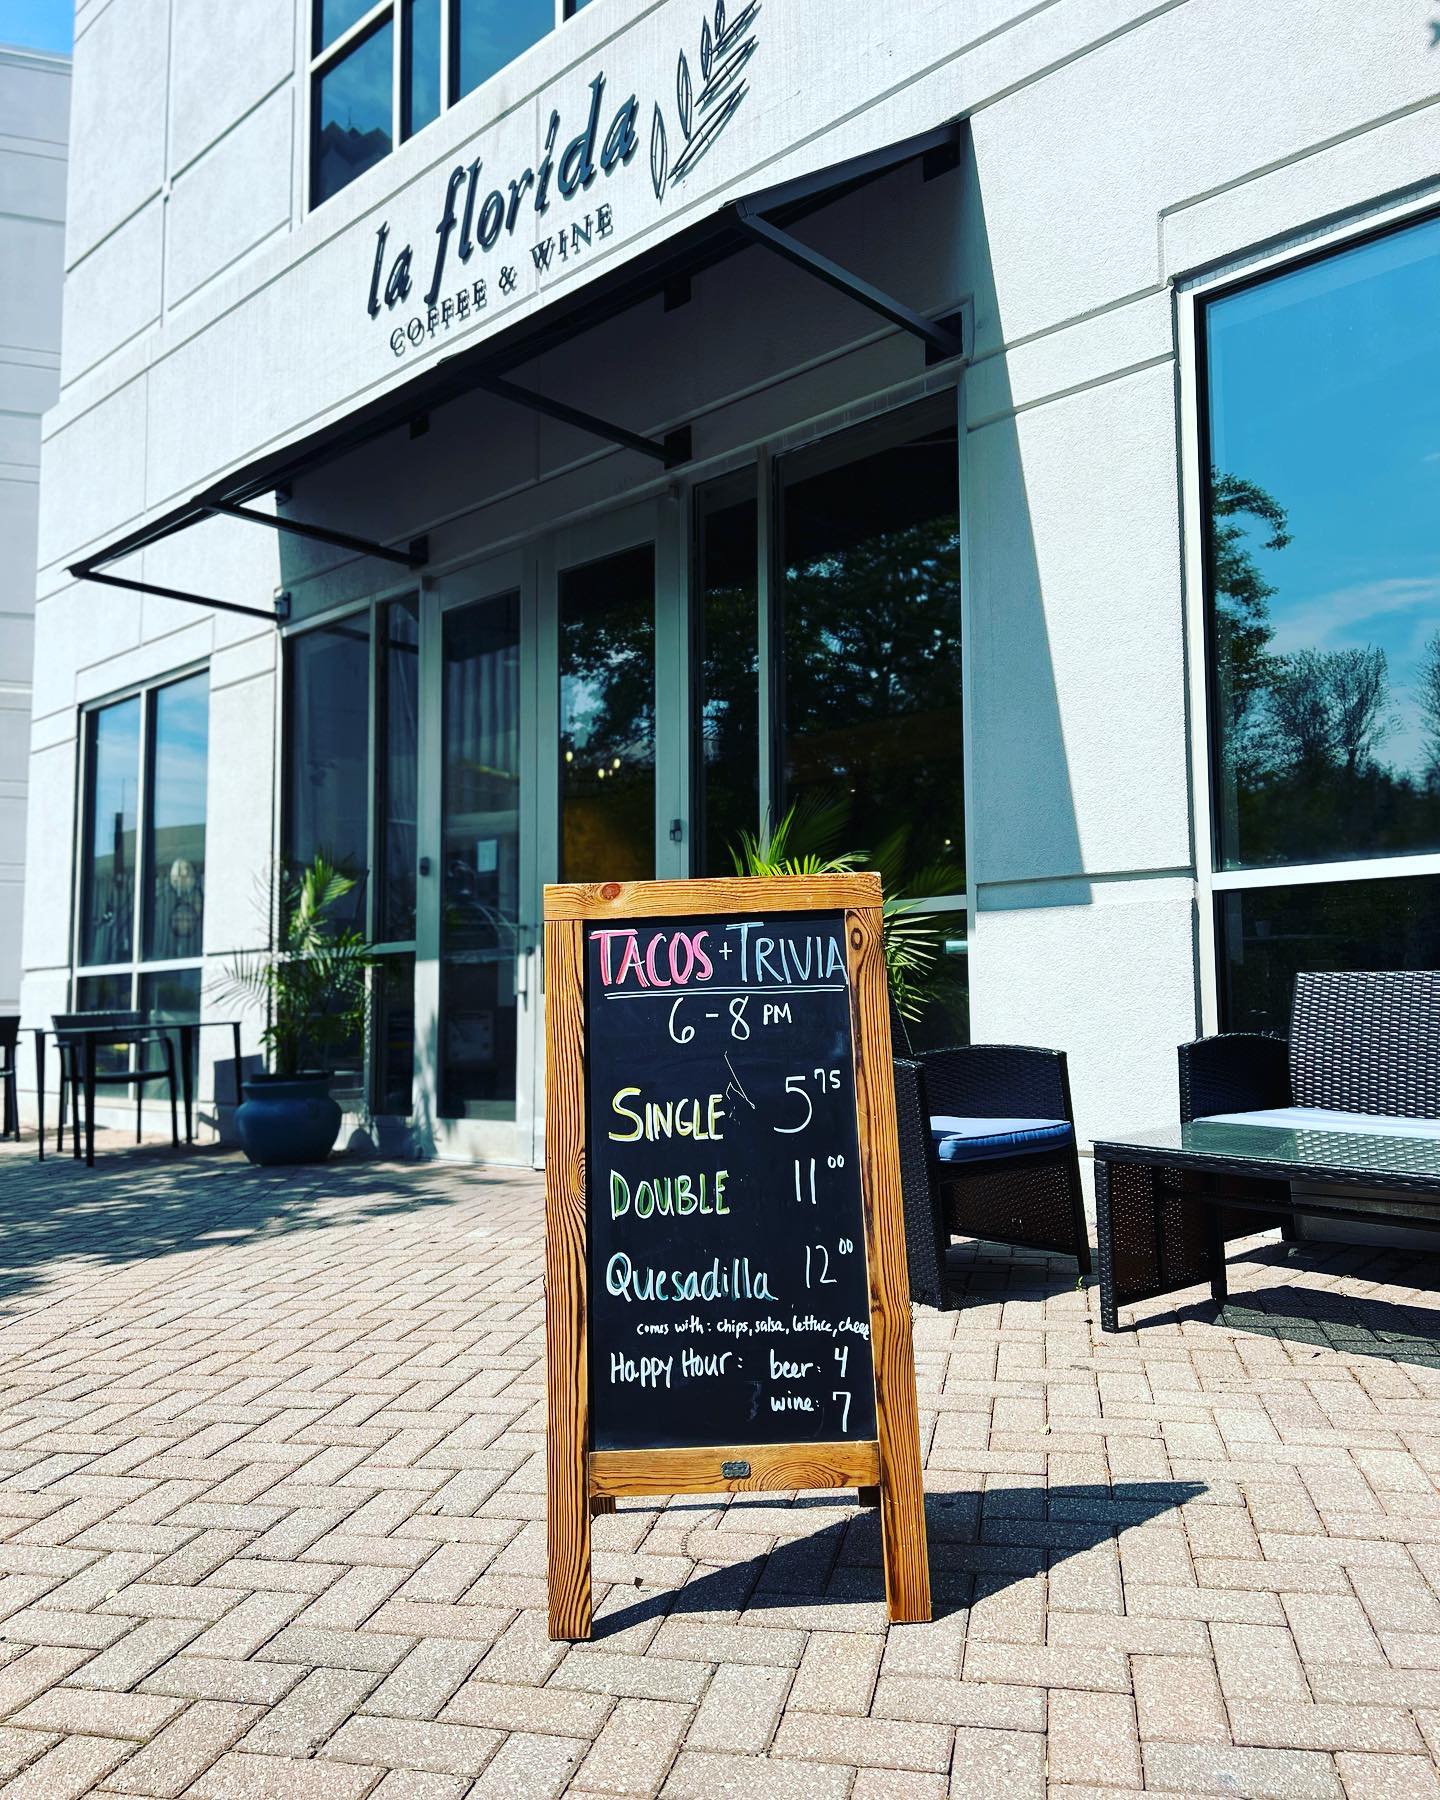 la florida
COFFEE & WINE
TACOS + TRIVIA
6 - 8 PM
SINGLE 5 75
DOUBLE 11 00
Quesadilla 12 00
comes with: chips, salsa, lettuce, cheese
Happy Hour: beer: 4
wine: 7